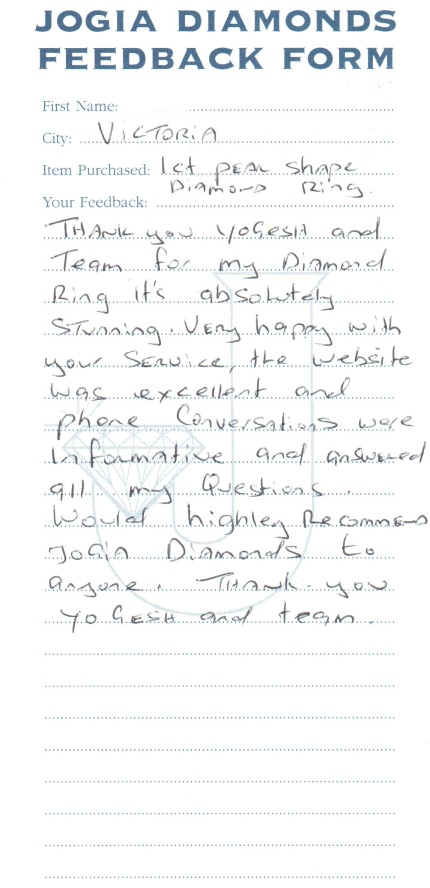 JOGIA DIAMONDS
FEEDBACK FORM
First Name:
City: VICTORIA
Item Purchased: 1ct PEAR Shape
Diamond Ring.
Your Feedback:
THANK you YOGESH and
Team for my Diamond
Ring it's absolutely
STunning. VERy happy with
your SERvice, the website
was excellent and
phone Conversations were
Informative and answered
all my Questions.
Would highley Recommend
JOGIA Diamonds to
anyone. THANK-you
YOGESH and team.